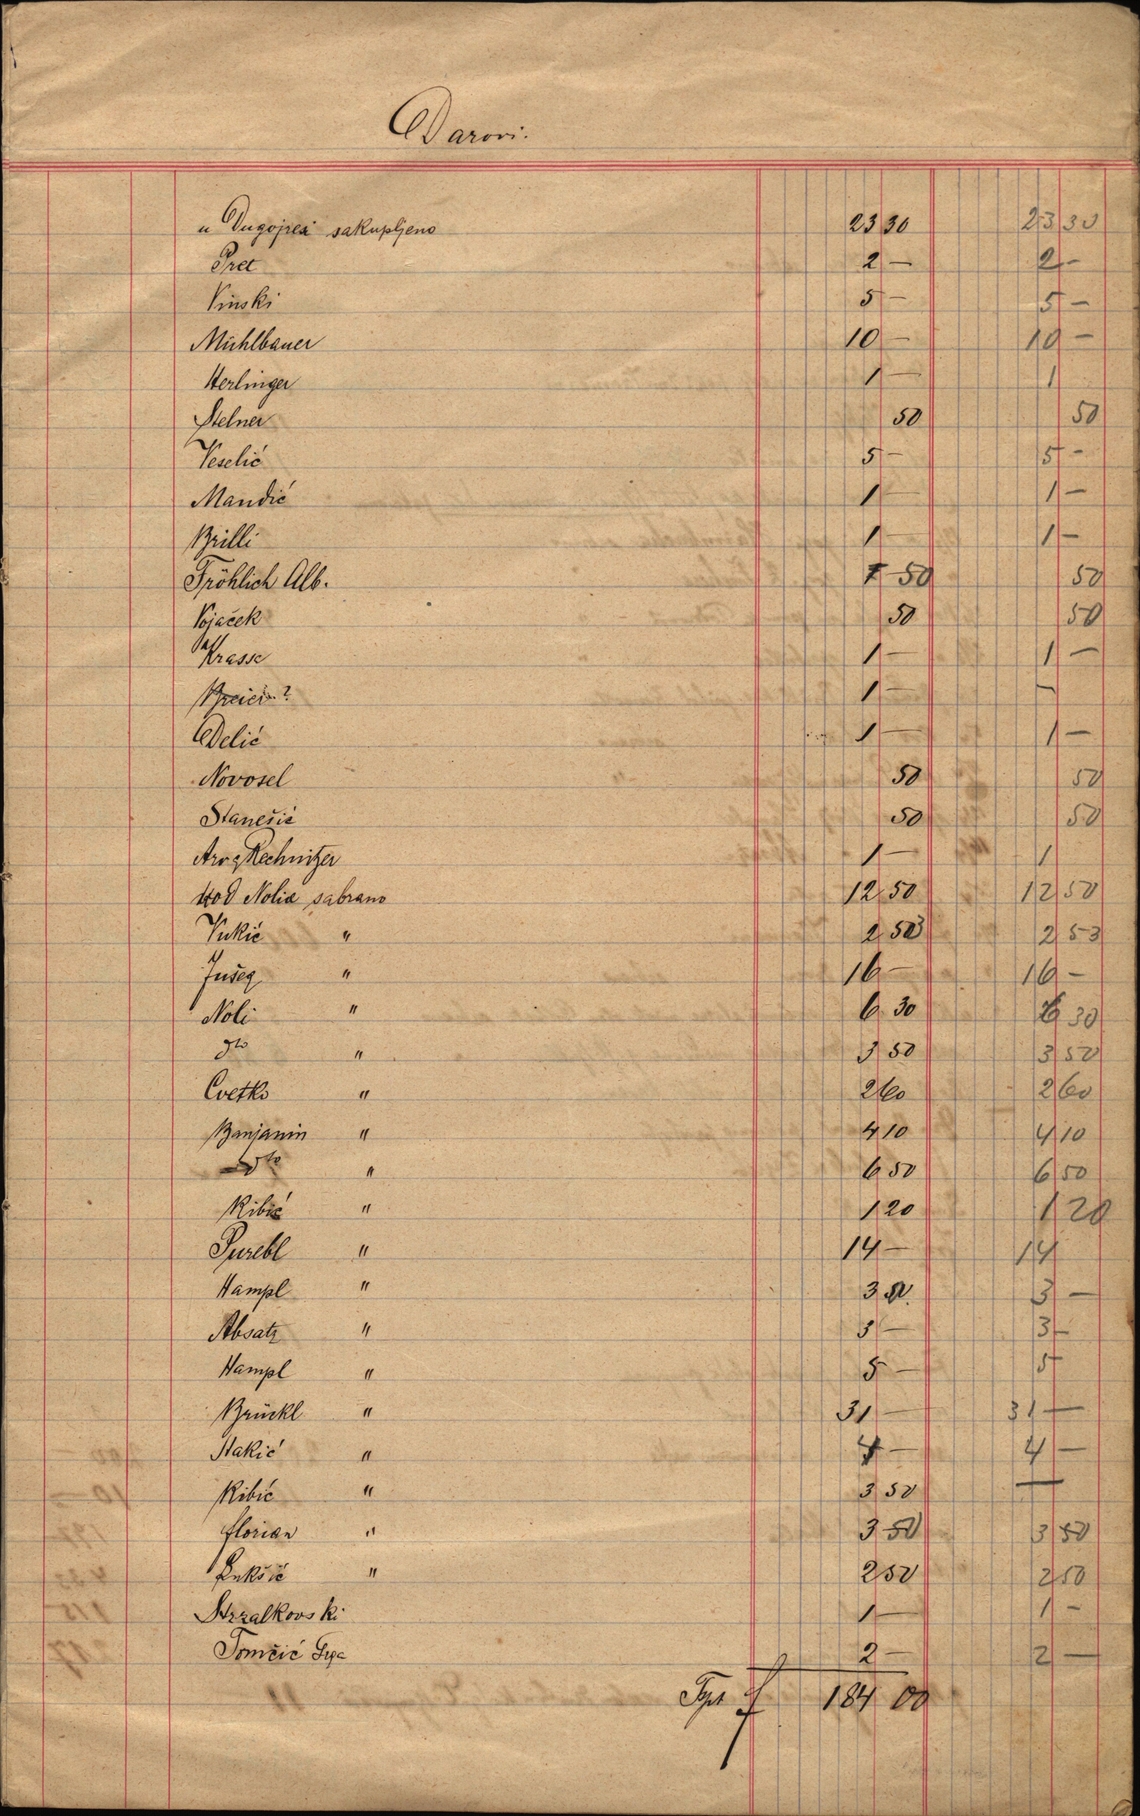 Darovi.
u Dugojresi sakupljeno 23 30 23 30
Pret 2 — 2 -
Vinski 5 — 5 —
Mühlbauer 10 — 10 —
Herlinger 1 — 1
Stelner 50 50
Veselić 5 — 5 -
Mandić 1 — 1 —
Brilli 1 — 1 —
Fröhlich Alb. 50 50
Vojaček 50 50
Krasse 1 — 1 —
? 1 — —
Delić 1 — 1 —
Novosel 50 50
Stanešić 50 50
Rechnitzer 1 — 1
od Nolia sabrano 12 50 12 50
Vukić " 2 53 2 53
Jušeg " 16 — 16 —
Noli " 6 30 6 30
dto " 3 50 3 50
Cvetko " 2 60 2 60
Banjanin " 4 10 4 10
dto " 6 50 6 50
Ribić " 1 20 1 20
Purebl " 14 — 14
Hampl " 3 3 —
Absatz " 3 — 3 —
Hampl " 5 — 5
Brückl " 31 — 31 —
Stakić " 4 — 4 —
Ribić " 3 50 —
Florian " 3 50 3 50
Lukšić " 2 50 2 50
Strzalkovski 1 — 1 -
Tomčić 2 — 2 —
f 184 00